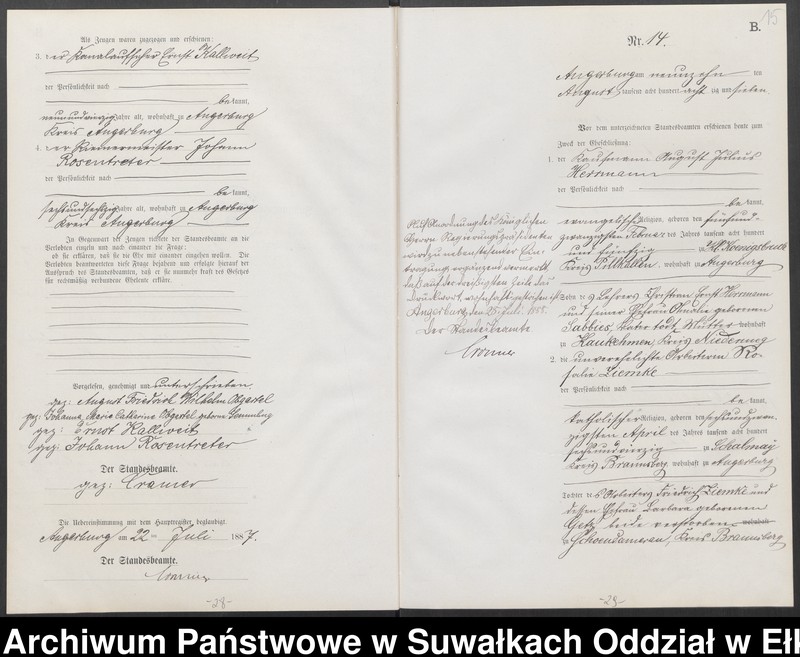 Als Zeugen waren zugezogen und erschienen:
3. der Kanalaufseher Ernst Kalliweit
der Persönlichkeit nach
be kannt,
neunundvierzig Jahre alt, wohnhaft zu Angerburg
Kreis Angerburg
4. der Riemermeister Johann
Rosentreter
der Persönlichkeit nach
be kannt,
sechsundsechzig Jahre alt, wohnhaft zu Angerburg
Kreis Angerburg
In Gegenwart der Zeugen richtete der Standesbeamte an die
Verlobten einzeln und nach einander die Frage:
ob sie erklären, daß sie die Ehe mit einander eingehen wollen. Die
Verlobten beantworteten diese Frage bejahend und erfolgte hierauf der
Ausspruch des Standesbeamten, daß er sie nunmehr kraft des Gesetzes
für rechtmäßig verbundene Eheleute erkläre.
Vorgelesen, genehmigt und unterschrieben
gez: August Friedrich Wilhelm Obgartel
gez: Johanna Maria Catharina Obgartel geborne
gez: Ernst Kalliweit
gez: Johann Rosentreter
Der Standesbeamte.
gez: Cramer
Die Uebereinstimmung mit dem Hauptregister beglaubigt.
Angerburg am 22 ten Juli 1887.
Der Standesbeamte.
Cramer
-28-
15
B.
Nr. 14.
Angerburg am neunzehn ten
August tausend acht hundert acht zig und sieben
Vor dem unterzeichneten Standesbeamten erschienen heute zum
Zweck der Eheschließung:
1. der Kaufmann August Julius
Herrmann
der Persönlichkeit nach
be kannt,
evangelischer Religion, geboren den fünfund-
zwanzigsten Februar des Jahres tausend acht hundert
und fünfzig zu Kl. Koenigsbruch
Kreis Pillkallen, wohnhaft zu Angerburg
Sohn des Lehrers Christian Ernst Herrmann
und seiner Ehefrau geborenen
Sabbies, Vater todt, Mutter wohnhaft
zu Kaukehmen, Kreis Niederung
2. die unverehelichte Arbeiterin Ro-
salie Liemke
der Persönlichkeit nach
be kannt,
katholischer Religion, geboren den sechsundzwan-
zigsten April des Jahres tausend acht hundert
sechsundvierzig zu Schalmey
Kreis Braunsberg, wohnhaft zu Angerburg
Tochter des Arbeiters Friedrich Liemke und
dessen Ehefrau Barbara geborenen
beide verstorben wohnhaft
zu Schoendamerau, Kreis Braunsberg
Auf Anordnung des Königlichen
Herrn Regierungspräsidenten
wird zu nebenstehender Ein-
tragung ergänzend vermerkt,
daß auf der dreißigsten Zeile das
Druckwort "wohnhaft" gestrichen ist
Angerburg, den 25. Juli 1888.
Der Standesbeamte
Cramer
-29-
Archiwum Państwowe w Suwałkach Oddział w Ełk